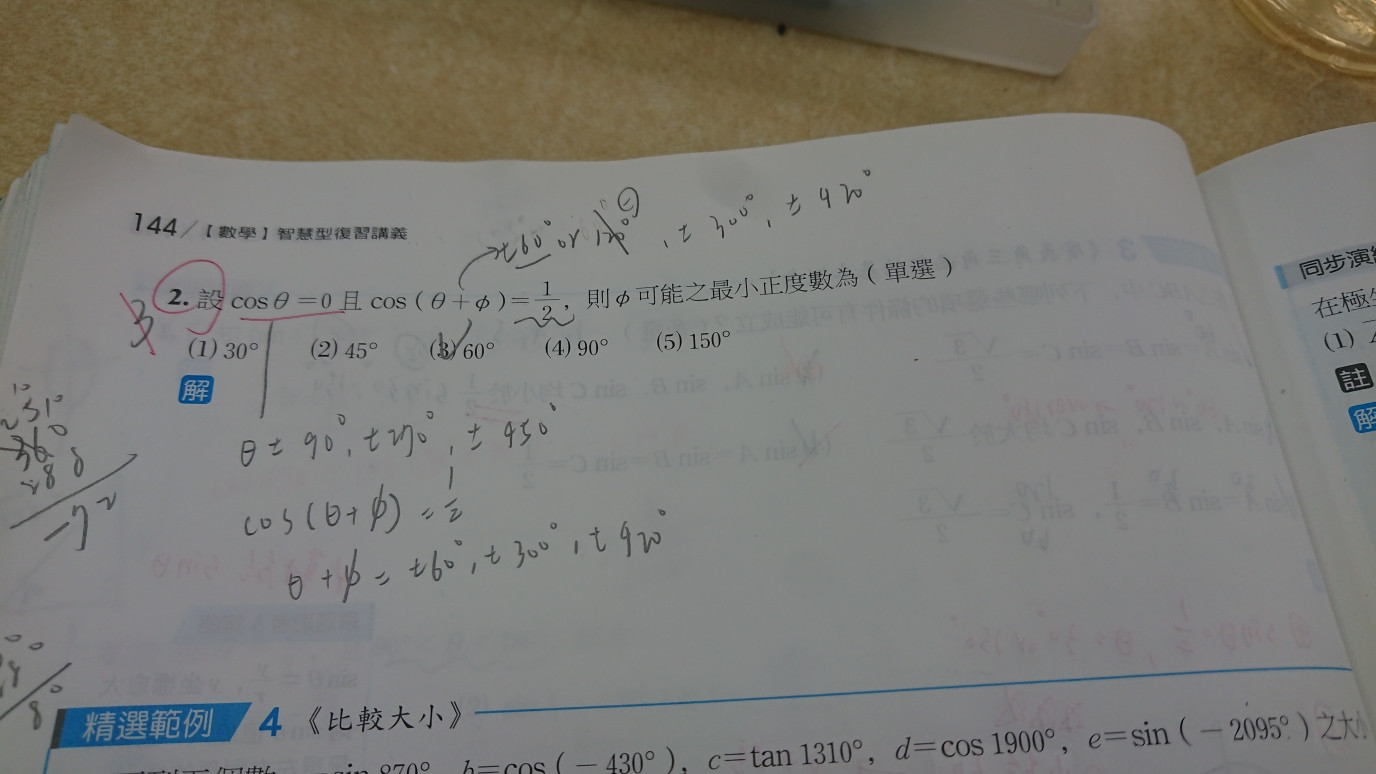 144/【數學】智慧型復習講義
±60° or 120°, ± 300°, ± 420°
2. 設 cosθ=0 且 cos(θ+φ)=1/2, 則 φ 可能之最小正度數為(單選)
3
(1) 30° (2) 45° (3) 60° (4) 90° (5) 150°
解
θ ± 90°, ±270°, ± 450°
cos(θ+φ) = 1/2
θ+φ = ±60°, ±300°, ±420°
360
288
72
精選範例 4 《比較大小》
sin 870°, b=cos(-430°), c=tan 1310°, d=cos 1900°, e=sin(-2095°)之大小
同步演
在極
(1)
註
解